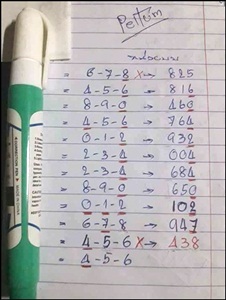 Pettum
= 6-7-8 X→ 825
= 4-5-6 → 816
= 8-9-0 → 460
= 4-5-6 → 764
= 0-1-2 → 932
= 2-3-4 → 004
= 2-3-4 → 684
= 8-9-0 → 650
= 0-1-2 → 102
= 6-7-8 → 947
= 4-5-6 X→ 438
= 4-5-6